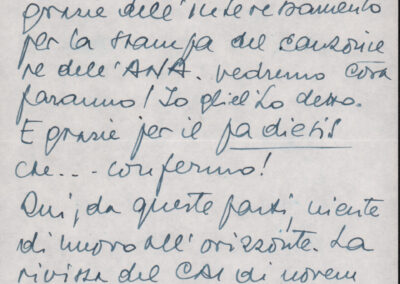 grazie dell'interessamento
per la stampa del canzonie
re dell'ANA. vedremo cosa
faranno! Io gliel'ho detto.
E grazie per il fa dietis
che... confermo!
Qui, da queste parti, niente
di nuovo all'orizzonte. La
rivista del CAI di novem